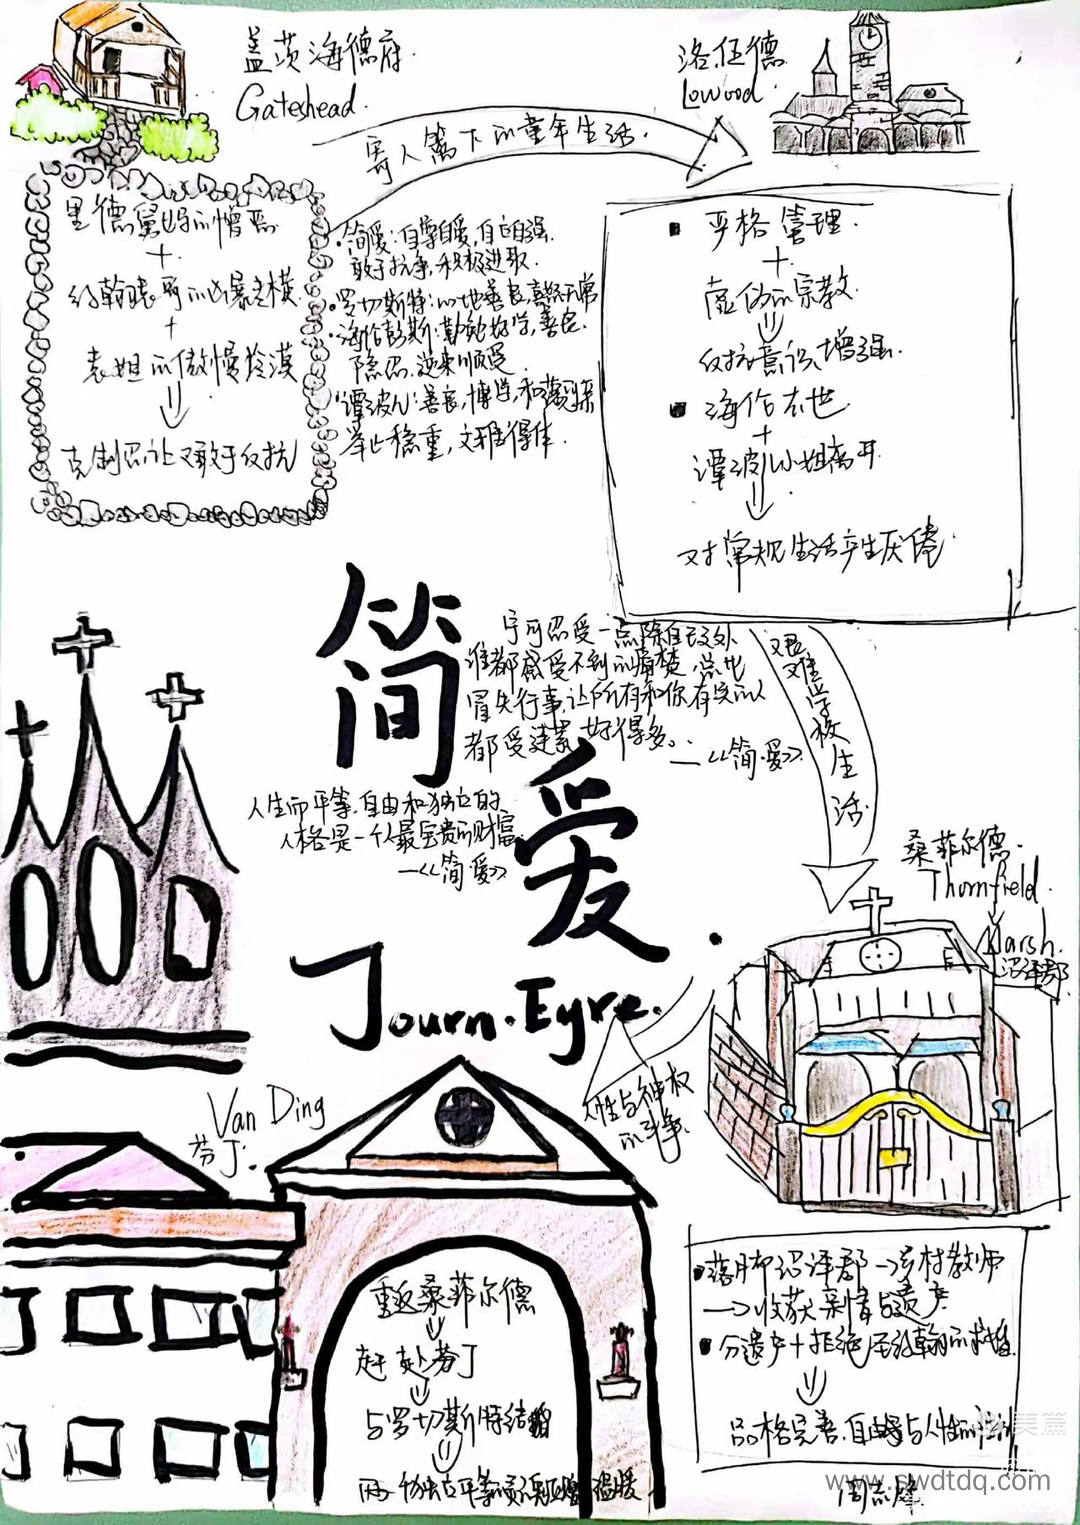 盖茨海德府
Gateshead.
洛伍德
Lowood
寄人篱下的童年生活.
里德舅妈的憎恶
+
约翰表哥的凶暴走横
+
表姐的傲慢冷漠
克制忍让又敢于反抗
·简爱:自尊自爱,自立自强.
敢于抗争,积极进取.
·罗切斯特:心地善良,喜怒无常
·海伦彭斯:勤勉好学,善良.
隐忍.逆来顺受.
·谭波儿:善良,博学,和蔼
举止稳重,文雅得体.
严格管理.
+
虚伪的宗教.
反抗意识增强.
海伦去世
+
谭波儿小姐离开
对常规生活产生厌倦.
宁可忍受一点除自己外
谁都感受不到的痛楚,总比
冒失行事,让所有和你有关的人
都受连累好得多。
—《简·爱》.
艰难学校生活.
简爱
人生而平等.自由和独立的
人格是一个人最宝贵的财富.
—《简·爱》
Journ·Eyre.
桑菲尔德.
Thornfield.
Marsh.
沼泽郡
人性与神权
的斗争.
Van Ding
芬丁.
重返桑菲尔德
赶赴芬丁
与罗切斯特结婚
两个独立平等灵魂 温暖
落脚沼泽郡→乡村教师
→收获亲情与遗产
分遗产+拒绝圣约翰的求婚
品格完善.自由与人性的
美篇
www.swdtdq.com